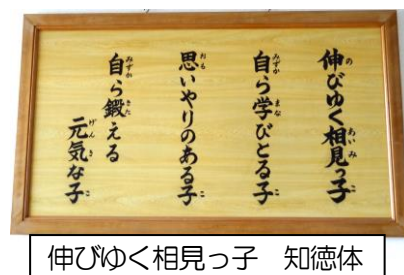 伸びゆく相見っ子
自ら学びとる子
思いやりのある子
自ら鍛える
元気な子
伸びゆく相見っ子　知徳体